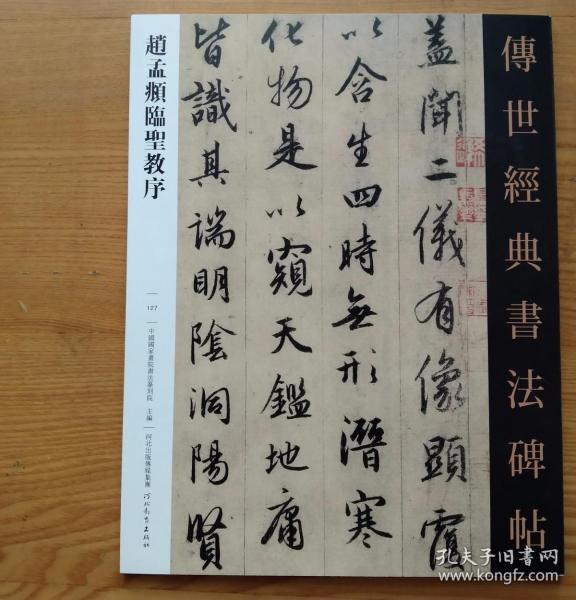 傳世經典書法碑帖
蓋聞二儀有像顯覆
以含生四時無形潛寒
化物是以窺天鑑地庸
皆識其端明陰洞陽賢
趙孟頫臨聖教序
127
中國國家畫院書法篆刻院 主編
河北出版傳媒集團
河北教育出版社
孔夫子旧书网
www.kongfz.com